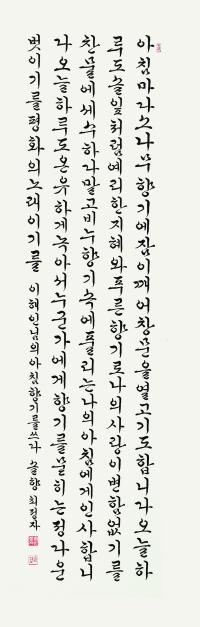 아침마다 소나무 향기에 잠이 깨어 창문을 열고 기도합니다 오늘 하
루도 솔잎처럼 예리한 지혜와 푸른 향기로 나의 사랑이 변함없기를
찬물에 세수하다 말고 비누향기 속에 풀리는 나의 아침에게 인사합니
다 오늘 하루도 온유하게 녹아서 누군가에게 향기를 묻히는 정다운
벗이기를 평화의 노래이기를 이해인님의 아침향기를 쓰다 솔향 최정자